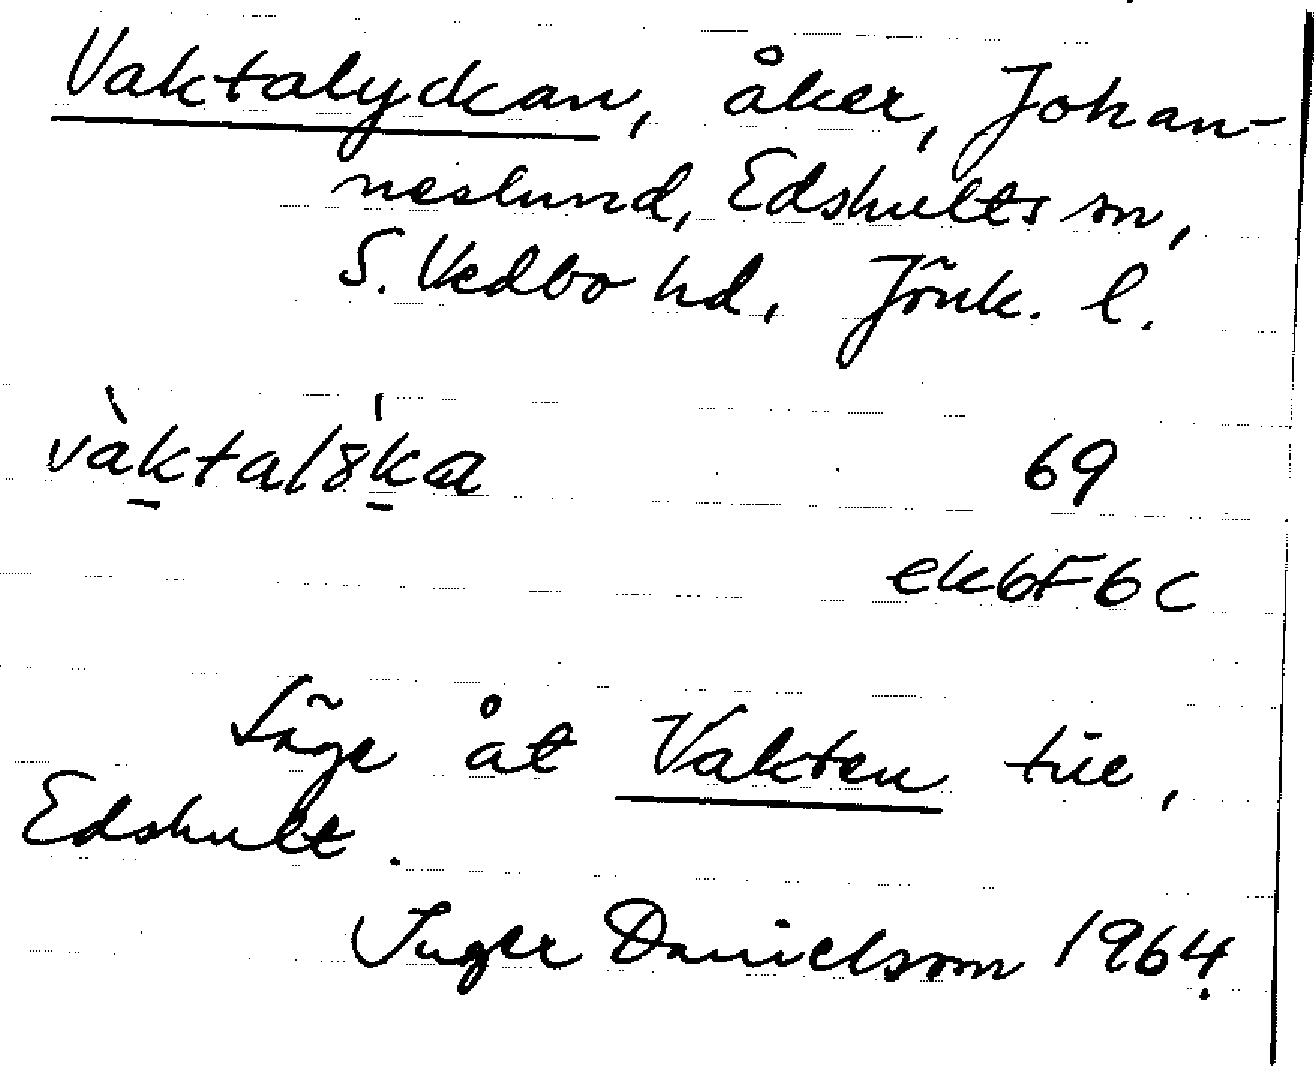 Vaktalyckan, åker, Johan-
neslund, Edshults sn,
S. Vedbo hd, Jönk. l.
69
ek6F6c
Läge åt Vakten till,
Edshult.
Inger Danielsson 1964.